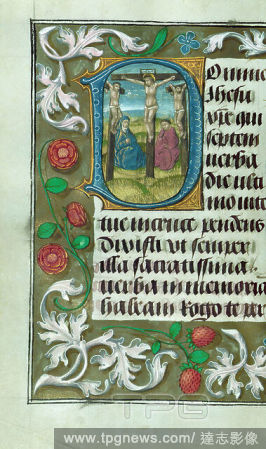 Domine
Jhesu
xpe qui
septem
verba
die ulti
mo vite
tue in cruce pendens
dixisti ut semper
illa sacratissima
verba in memoria
habeam Rogo te per
TPG
www.tpgnews.com / 達志影像